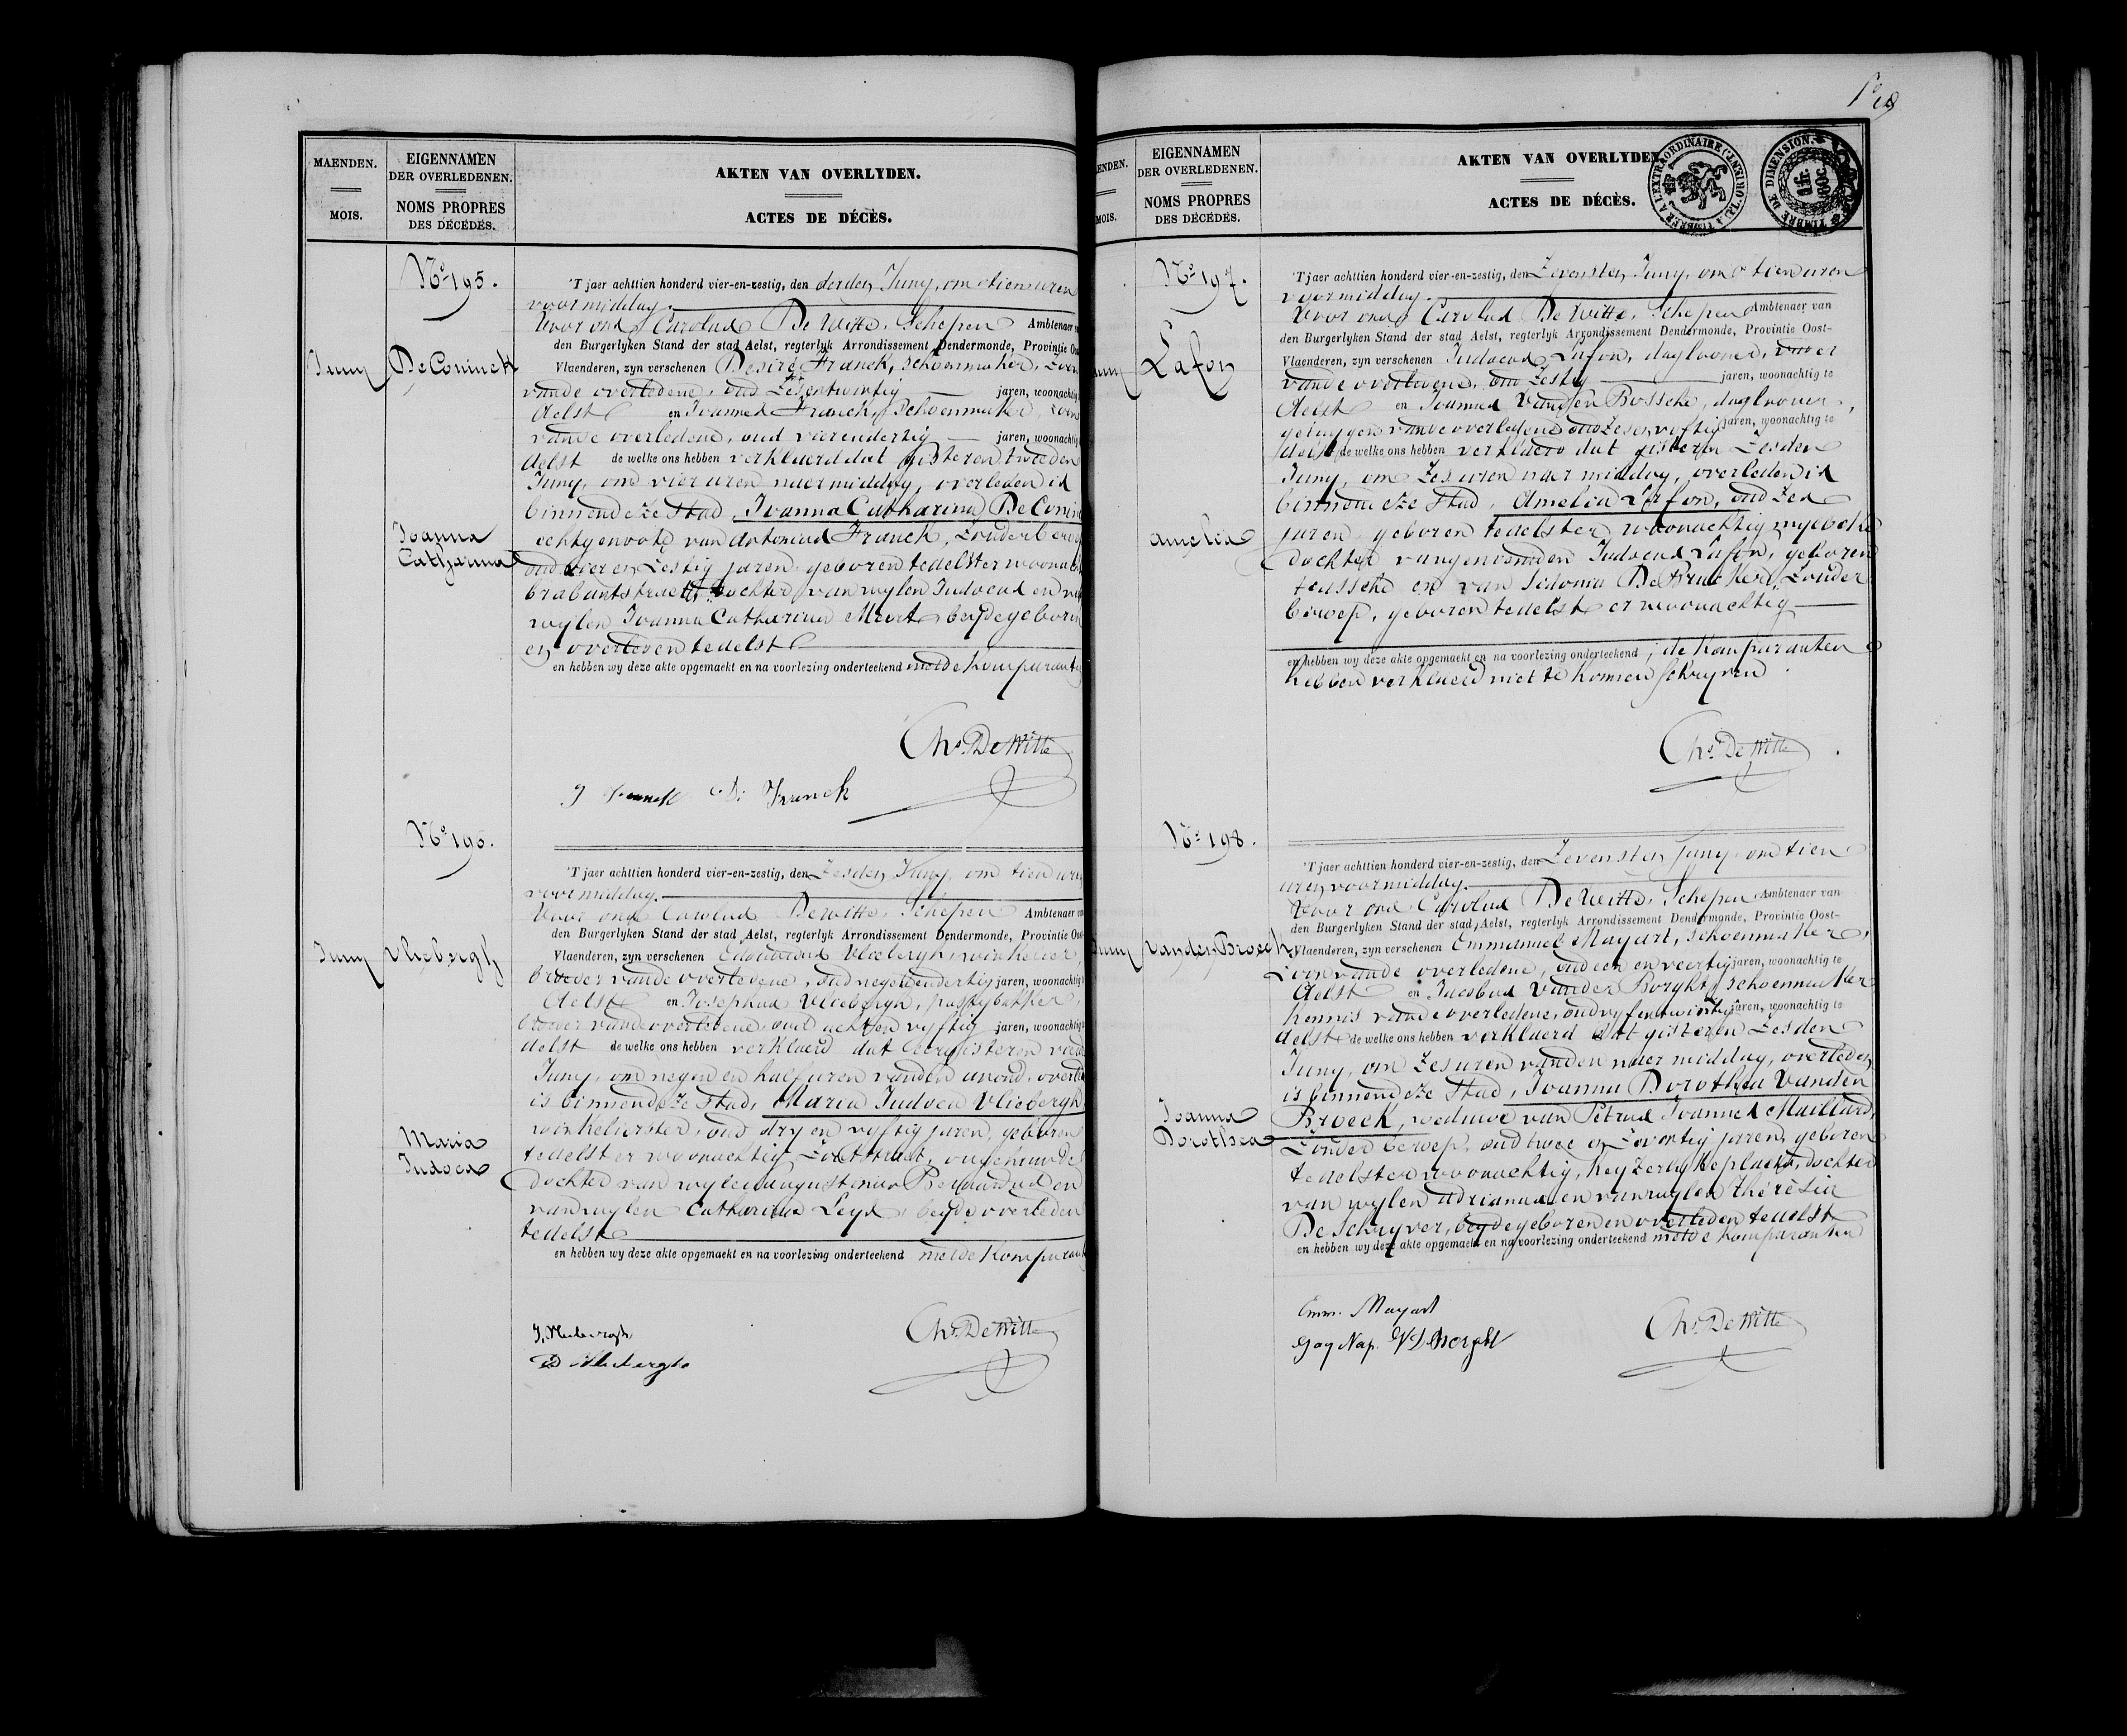 MAENDEN.
MOIS.
EIGENNAMEN
DER OVERLEDENEN.
NOMS PROPRES
DES DÉCÉDÉS.
AKTEN VAN OVERLYDEN.
ACTES DE DÉCÈS.
No 195.
Juny
De Coninck
Joanna
Catharina
'T jaer achttien honderd vier-en-zestig, den derden Juny, om tien uren
voormiddag.
Voor ons Carolus De Witte, Schepen Ambtenaer
den Burgerlyken Stand der stad Aelst, regterlyk Arrondissement Dendermonde, Provintie
Vlaenderen, zyn verschenen Desiré Franck, schoenmaker, zoon
vande overledene, oud zesentwintig jaren, woonachtig
Aelst en Joannes Franck, schoenmaker, zoon
vande overledene, oud vierendertig jaren, woonachtig
Aelst de welke ons hebben verklaerd dat gisteren tweeden
Juny, om vier uren naermiddag, overleden is
binnen deze stad, Joanna Catharina De Conin
echtgenote van Antonius Franck, zonder beroep
oud vier en zestig jaren, geboren te Aelst er woonac
brabantstraet, dochter van wylen Judocus en van
wylen Joanna Catharina Meert, beyde geboren
en overleden te Aelst
en hebben wy deze akte opgemaekt en na voorlezing onderteekend met de komparanten
Chs. De Witte
J Franck D. Franck
No 196.
Juny
Vliebergh
Maria
Judoca
'T jaer achttien honderd vier-en-zestig, den zesden Juny, om tien uren
voormiddag.
Voor ons Carolus De Witte, Schepen Ambtenaer
den Burgerlyken Stand der stad Aelst, regterlyk Arrondissement Dendermonde, Provintie
Vlaenderen, zyn verschenen Edouardus Vliebergh, winkelier,
broeder vande overledene, oud negenendertig jaren, woonachtig
Aelst en Josephus Vliebergh, pasteybakker,
broeder vande overledene, oud acht en vyftig jaren, woonachtig
Aelst de welke ons hebben verklaerd dat eergisteren
Juny, om negen en half uren vanden avond, overle
is binnen deze stad, Maria Judoca Vliebergh,
winkelierster, oud dry en vyftig jaren, geboren
te Aelst er woonachtig Zoutstraet, ongehuwde
dochter van wylen Augustinus Bernardus en
van wylen Catharina Leys, beyde overleden
te Aelst
en hebben wy deze akte opgemaekt en na voorlezing onderteekend met de komparant
J. Vliebergh
E Vliebergh
Chs. De Witte
MOIS.
EIGENNAMEN
DER OVERLEDENEN.
NOMS PROPRES
DES DÉCÉDÉS.
AKTEN VAN OVERLYDEN
ACTES DE DÉCÈS.
TIMBRE DE DIMENSION
No 197.
Lafon
Amelia
'T jaer achttien honderd vier-en-zestig, den zevensten Juny, om tien uren
voormiddag.
Voor ons Carolus De Witte, Schepen Ambtenaer van
den Burgerlyken Stand der stad Aelst, regterlyk Arrondissement Dendermonde, Provintie Oost-
Vlaenderen, zyn verschenen Judocus Lafon, daglooner, vader
vande overledene, oud zestig jaren, woonachtig te
Aelst en Joannes Vanden Bossche, daglooner,
getuygen vande overledene oud zes en vyftig jaren, woonachtig te
Aelst de welke ons hebben verklaerd dat gisteren zesden
Juny, om zes uren naermiddag, overleden is
binnen deze stad, Amelia Lafon, oud zes
jaren, geboren te Aelst er woonachtig
dochter van genoemden Judocus Lafon, geboren
te Assche en van Sidonia De Brucker, zonder
beroep, geboren te Aelst er woonachtig
en hebben wy deze akte opgemaekt en na voorlezing onderteekend, de komparanten
hebben verklaerd niet te konnen schryven
Chs. De Witte
No 198.
Vanden Broeck
Joanna
Dorothea
'T jaer achttien honderd vier-en-zestig, den zevensten Juny, om tien
uren voormiddag.
Voor ons Carolus De Witte, Schepen Ambtenaer van
den Burgerlyken Stand der stad Aelst, regterlyk Arrondissement Dendermonde, Provintie Oost-
Vlaenderen, zyn verschenen Emmanuel Mayart, schoenmaker,
zoon vande overledene, oud een en veertig jaren, woonachtig te
Aelst en Jacobus Vander Borght, schoenmaker
kennis vande overledene, oud vyfentwintig jaren, woonachtig te
Aelst de welke ons hebben verklaerd dat gisteren zesden
Juny, om zes uren vanden naermiddag, overleden
is binnen deze stad, Joanna Dorothea Vanden
Broeck, weduwe van Petrus Joannes Maillard,
zonder beroep, oud twee en zeventig jaren, geboren
te Aelst er woonachtig, Keyzerlykeplaets, dochter
van wylen Adrianus en van wylen Thérèsia
De Schryver, beyde geboren en overleden te Aelst
en hebben wy deze akte opgemaekt en na voorlezing onderteekend met de komparanten
Emm. Mayart
Chs. De Witte